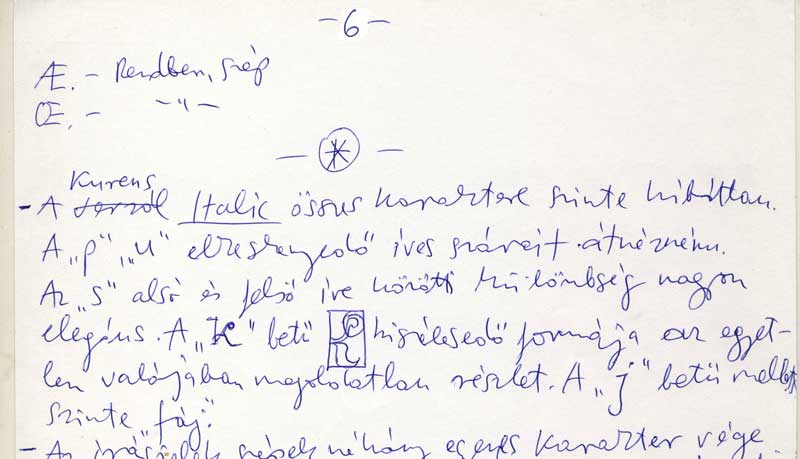 -6-
Æ. - Rendben, szép
Œ. - -"-
Kurens
- A Italic összes karaktere szinte hibátlan.
A „p” „u” elkeskenyedő íves szárait átnézném.
Az „s” alsó és felső íve közötti különbség nagyon
elegáns. A „k” betű kiszélesedő formája az egyet-
len valójában megoldatlan részlet. A „j” betű mellett
szinte „fáj”.
- Az írásjelek néhány egyes karakter vége